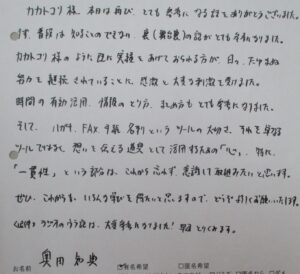 カカトコリ様、本日は再び、とても参考になる話をありがとうございました。
まず、普段は知ることのできない、裏(舞台裏)の話がとても参考になりました。
カカトコリ様のように既に実績をあげておられる方が、日々、たゆまぬ
努力を継続されていることに、感激と大きな刺激を受けました。
時間の有効活用、情報のとり方、まとめ方もとても参考になりました。
そして、ハガキ、FAX、手紙、名刺というツールの大切さ、それを単なる
ツールではなく、想いを伝える道具として活用するための「心」、特に、
「一貫性」という部分は、これから忘れず、意識して取組みたいと思います。
ぜひ、これからも、いろんな学びを得たいと思いますので、どうぞ宜しくお願いいたします。
のうら話は、大変参考になりました!早速とりくみます。
お名前 奥田和典 有名希望 □匿名希望